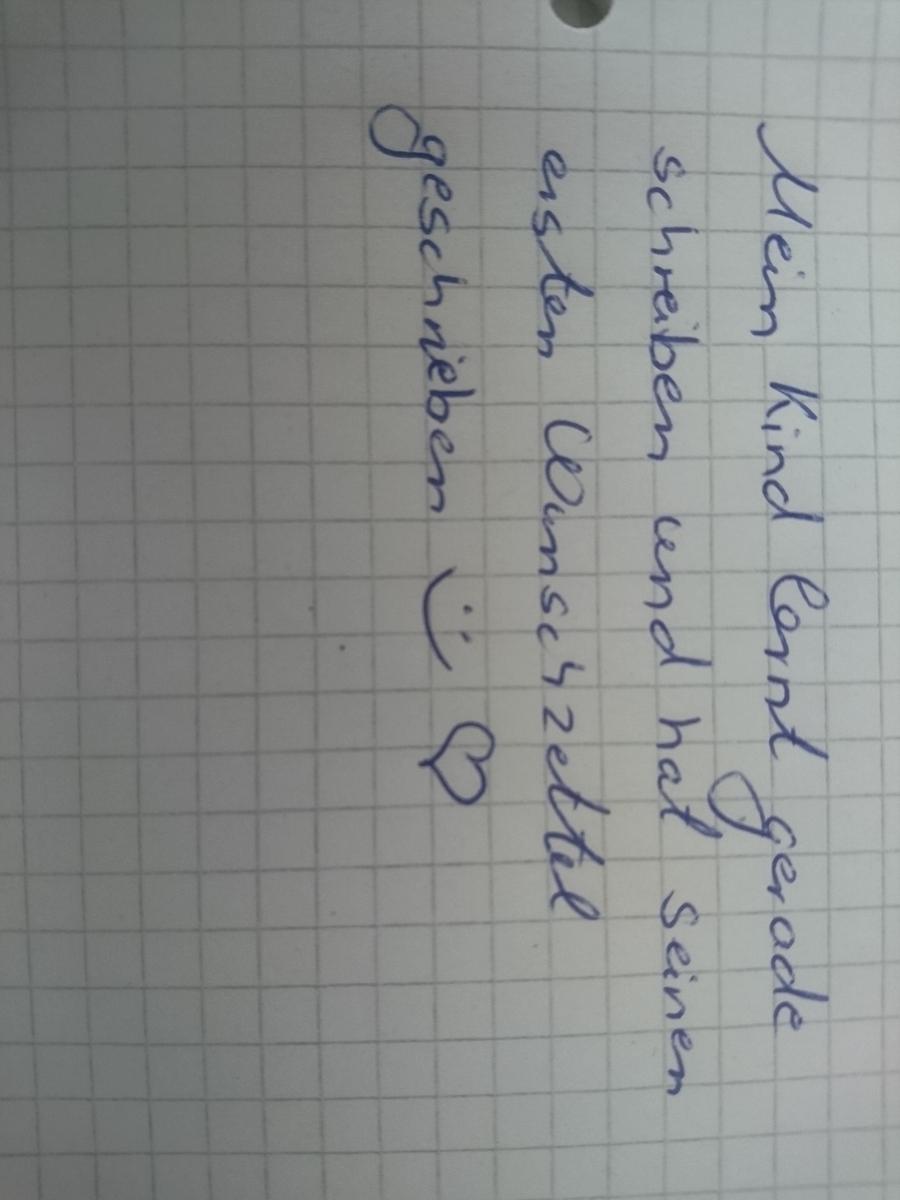 Mein Kind lernt gerade
schreiben und hat seinen
ersten Wunschzettel
geschrieben :) ♡